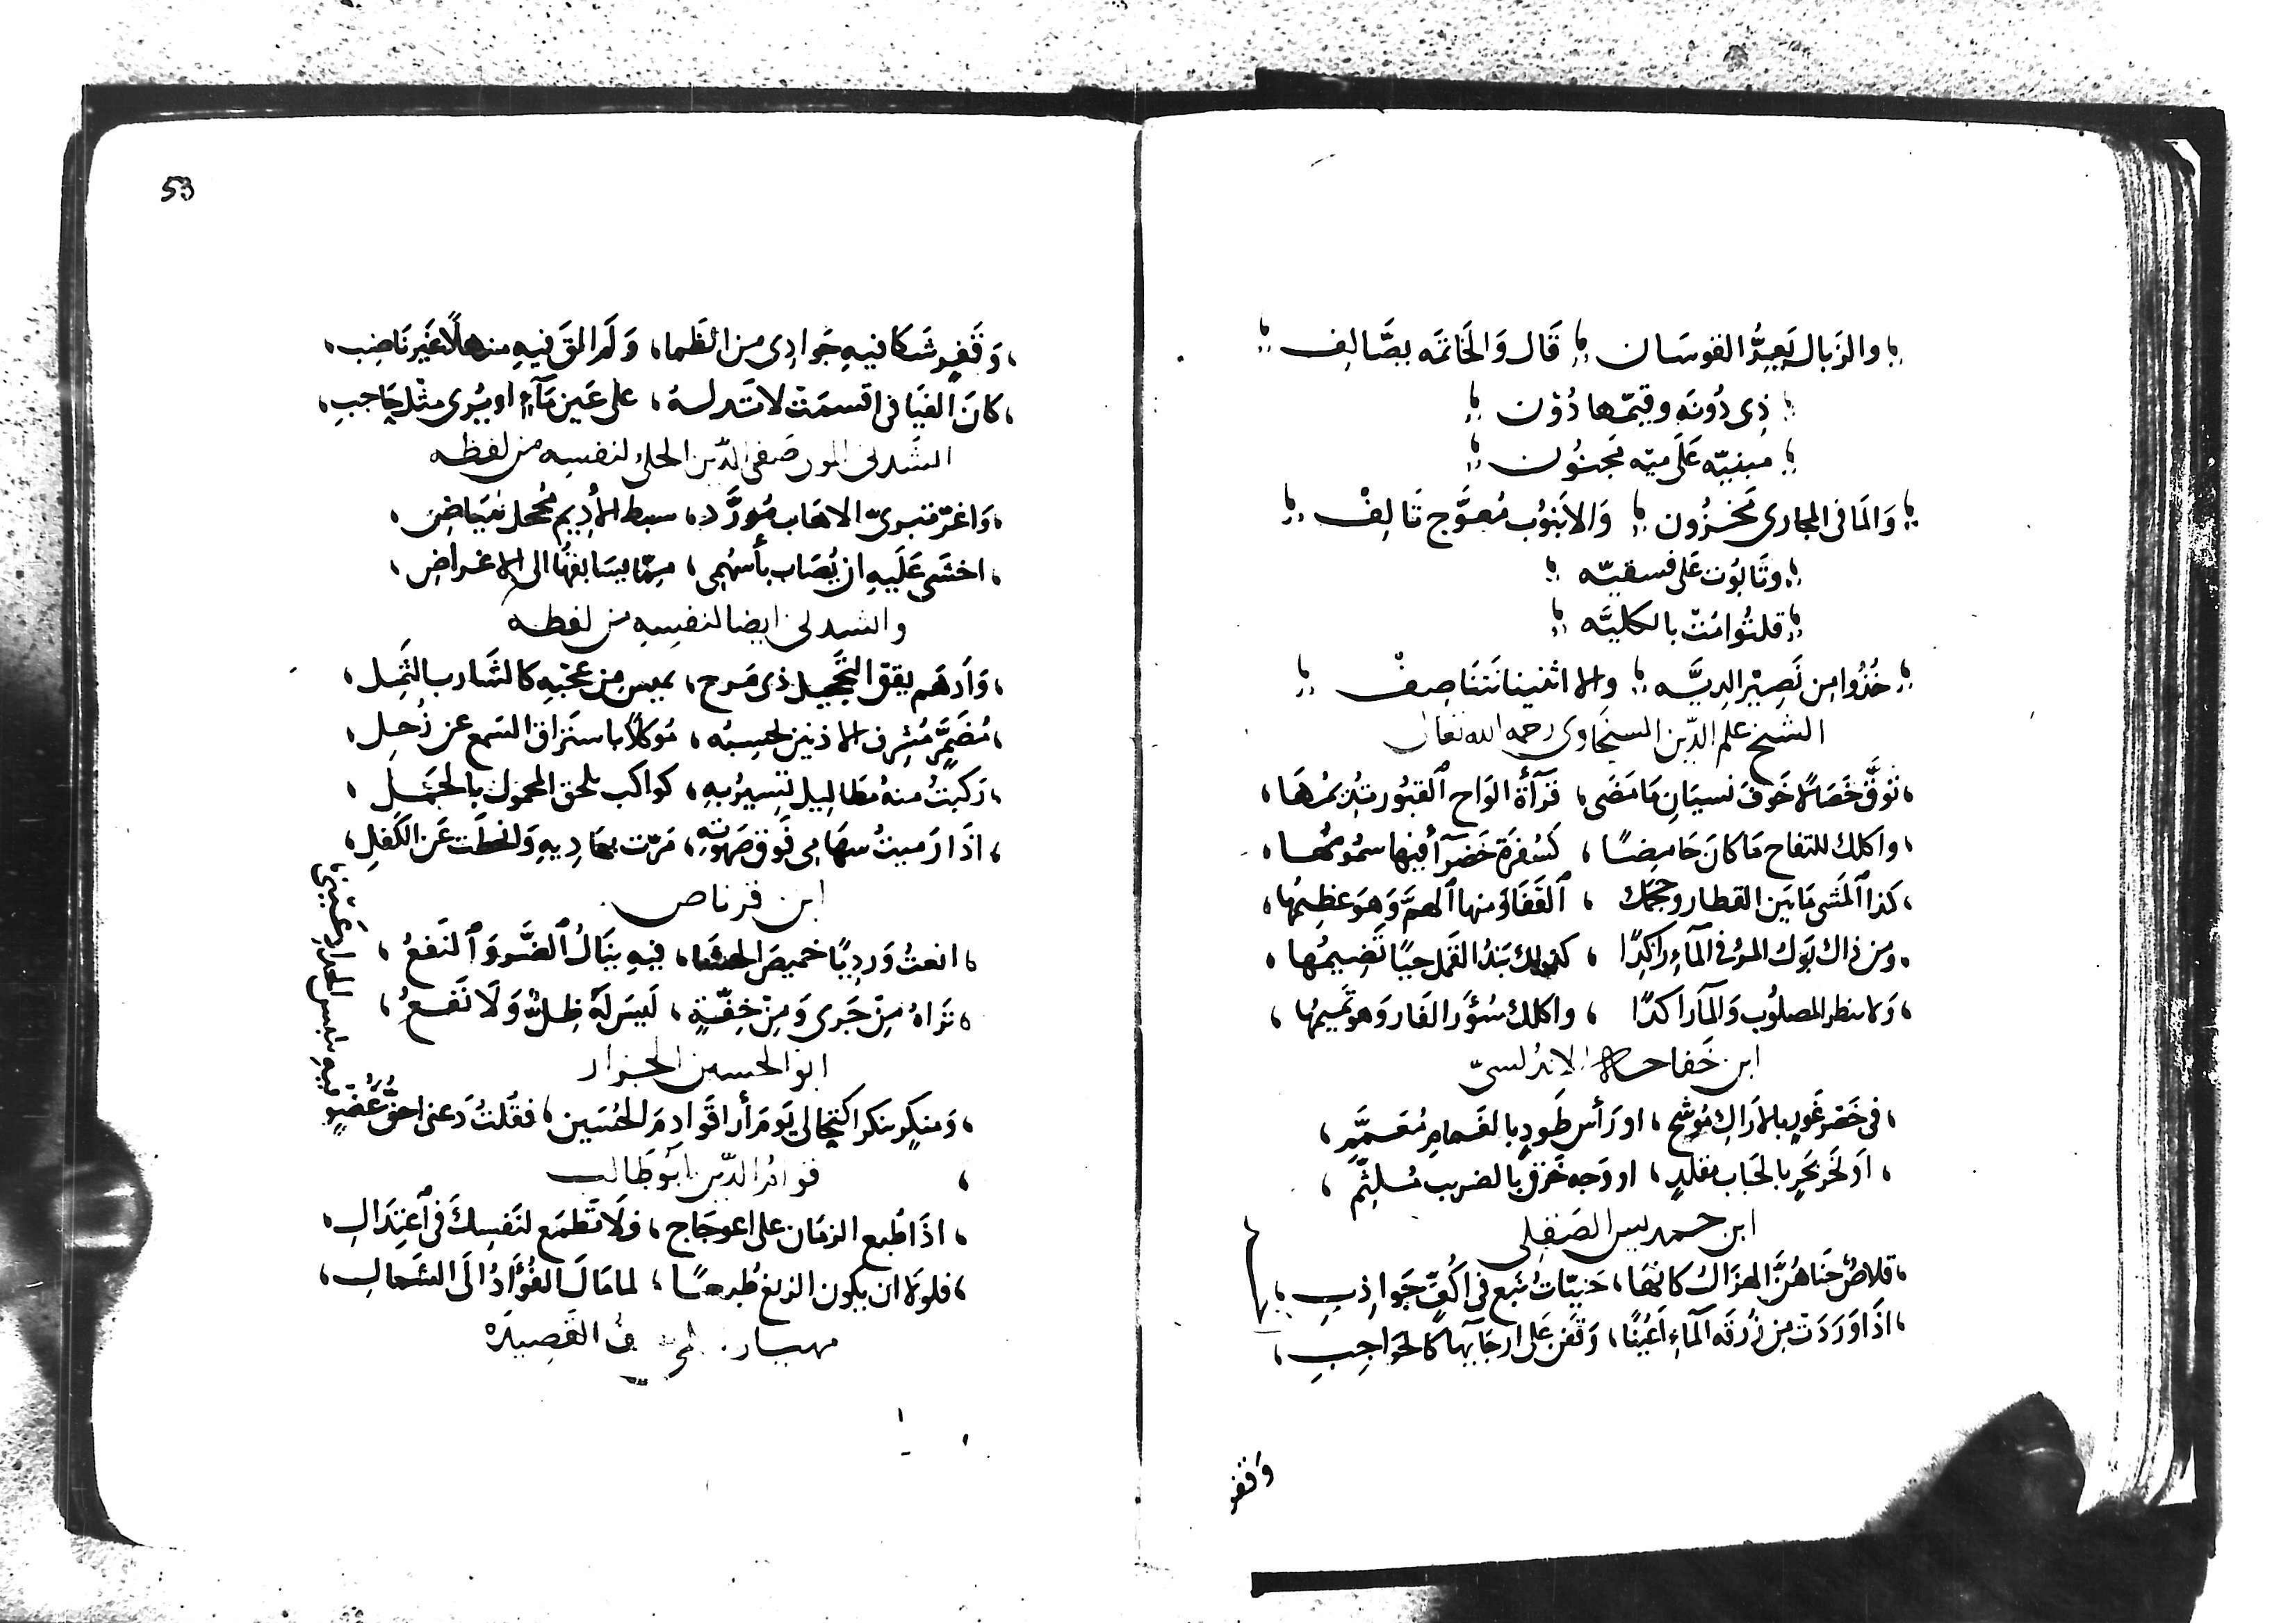 والزبال يعبد القوسان قال والخاتمه بصالف
ذى دونه وقيمها دون
مبنيه على ميه مجنون
والما فى المجارى مخزون والابنوب معوج تالف
وتابوت على فسقيه
قلتوا مت بالكليه
خذوا من نصير الديه والا اثنينا نتناصف
الشيخ علم الدين السخاوى رحمه الله تعالى
توق خصالا خوف نسيان ما مضى، قرآة الواح القبور تديمها،
واكلك للتفاح ما كان حامضا، كسفرة خضرآ فيها سمومها،
كذا المشى ما بين القطار وحجمك، القفا ومنها الهم وهو عظيمها،
ومن ذاك بول المرء فى المآء راكدا، كذلك نبذ القمل حيا تضيمها،
ولا تنظر المصلوب والمآ راكدا، واكلك سؤر الفار وهو تميمها،
ابن خفاجه الاندلسى
فى خصر غور بالاراك موشح، او رأس طود بالغمام معمم،
او نحر نحر بالحباب مقلد، او وجه خرق بالضريب مسلثم،
ابن حمديس الصقلى
قلاص حناهن الهزال كانها، حنيات نبع فى اكف جواذب،
اذا وردت من زرقه المآء اعينا، وقفن على ارجآيها كالحواجب،
وقفر
53
وقفر شكا فيه جوادى من الظما، ولم الق فيه منهلا غير ناضب،
كان الفيافى اقسمت لا تدلسه، على عين مآء او يرى مثل حاجب،
انشدنى المولى صفى الدين الحلى لنفسه من لفظه
واغر تبرى الاهاب مورد، سبط الاديم محجل ببياض،
اخشى عليه ان يصاب بأسهمى، مما يسابقها الى الاغراض،
وانشدنى ايضا لنفسه من لفظه
وادهم يقق التحجيل ذى مرح، يميس من عجبه كالشارب الثمل،
مضمر مشرف الاذنين تحسبه، موكلا باستراق السمع عن زحل،
ركبت منه مطا ليل تسير به، كواكب تلحق المحمول بالحمل،
اذا رميت سهامى فوق صهوته، مرت بهاديه وانحطت عن الكفل،
ابن قرناص
انعت ورديا خميص الحشا، فيه ينال الضر والنفع،
تراه من جرى ومن خفة، ليس له ظل ولا نقع،
ابو الحسين الجزار
ومنكر منكر اكتحالى يوم أراقوا دم الحسين، فقلت دعنى احق عضو
فيه بلبس الحداد عينى
قوام الدين ابو طالب
اذا طبع الزمان على اعوجاج، فلا تطمع لنفسك فى اعتدال،
فلولا ان يكون الزيغ طبعا، لما مال الفؤاد الى الشمال،
مهيار القصيده